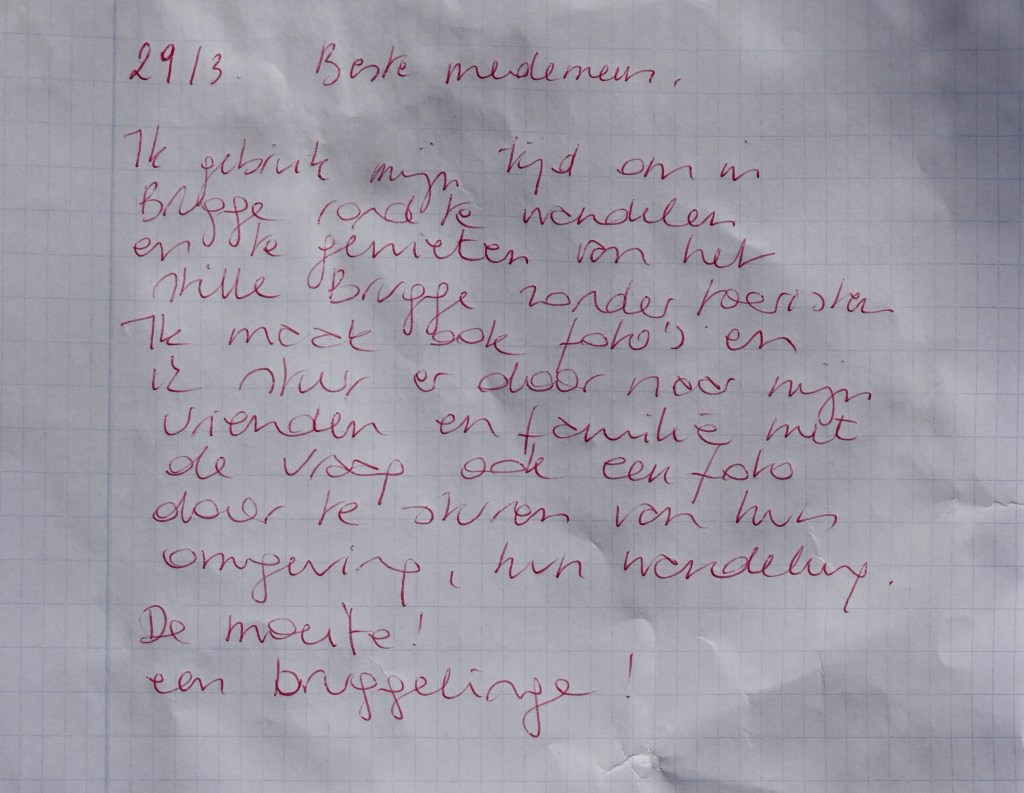 29/3. Beste medemens,
Ik gebruik mijn tijd om in
Brugge rond te wandelen
en te genieten van het
stille Brugge zonder toeristen
Ik maak ook foto's en
ik stuur er door naar mijn
vrienden en familië met
de vraag ook een foto
door te sturen van hun
omgeving, hun wandeling.
De moeite!
een bruggelinge!